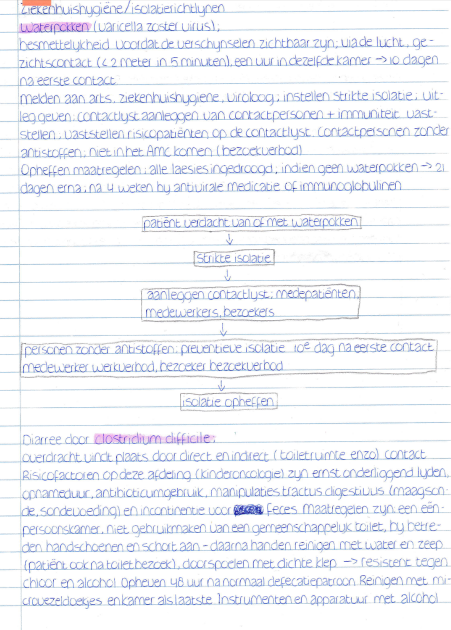 ziekenhuishygiëne/isolatierichtlijnen
waterpokken (varicella zoster virus);
besmettelijkheid voordat de verschijnselen zichtbaar zijn; via de lucht, ge-
zichtscontact (< 2 meter in 5 minuten), een uur in dezelfde kamer → 10 dagen
na eerste contact
melden aan arts, ziekenhuishygiene, viroloog; instellen strikte isolatie; uit-
leg geven; contactlijst aanleggen van contactpersonen + immuniteit vast-
stellen; vaststellen risicopatiënten op de contactlijst. Contactpersonen zonder
antistoffen; niet in het AMC komen (bezoekverbod)
Opheffen maatregelen; alle laesies ingedroogd, indien geen waterpokken → 21
dagen erna, na 4 weken bij antivirale medicatie of immunoglobulinen
patiënt verdacht van of met waterpokken
strikte isolatie
aanleggen contactlijst; medepatiënten,
medewerkers, bezoekers
personen zonder antistoffen; preventieve isolatie 10e dag na eerste contact
medewerker werkverbod, bezoeker bezoekverbod
isolatie opheffen
Diarree door clostridium difficile;
overdracht vindt plaats door direct en indirect (toiletruimte enzo) contact
Risicofactoren op deze afdeling (kinderoncologie) zijn ernst onderliggend lijden,
opnameduur, antibioticumgebruik, manipulaties tractus digestivus (maagson-
de, sondevoeding) en incontinentie voor feces. Maatregelen zijn een één-
persoonskamer, niet gebruikmaken van een gemeenschappelijk toilet, bij betre-
den handschoenen en schort aan - daarna handen reinigen met water en zeep
(patiënt ook na toilet bezoek), doorspoelen met dichte klep → resistent tegen
chloor en alcohol. Opheven 48 uur na normaal defecatiepatroon. Reinigen met mi-
crovezeldoekjes en kamer als laatste. Instrumenten en apparatuur met alcohol